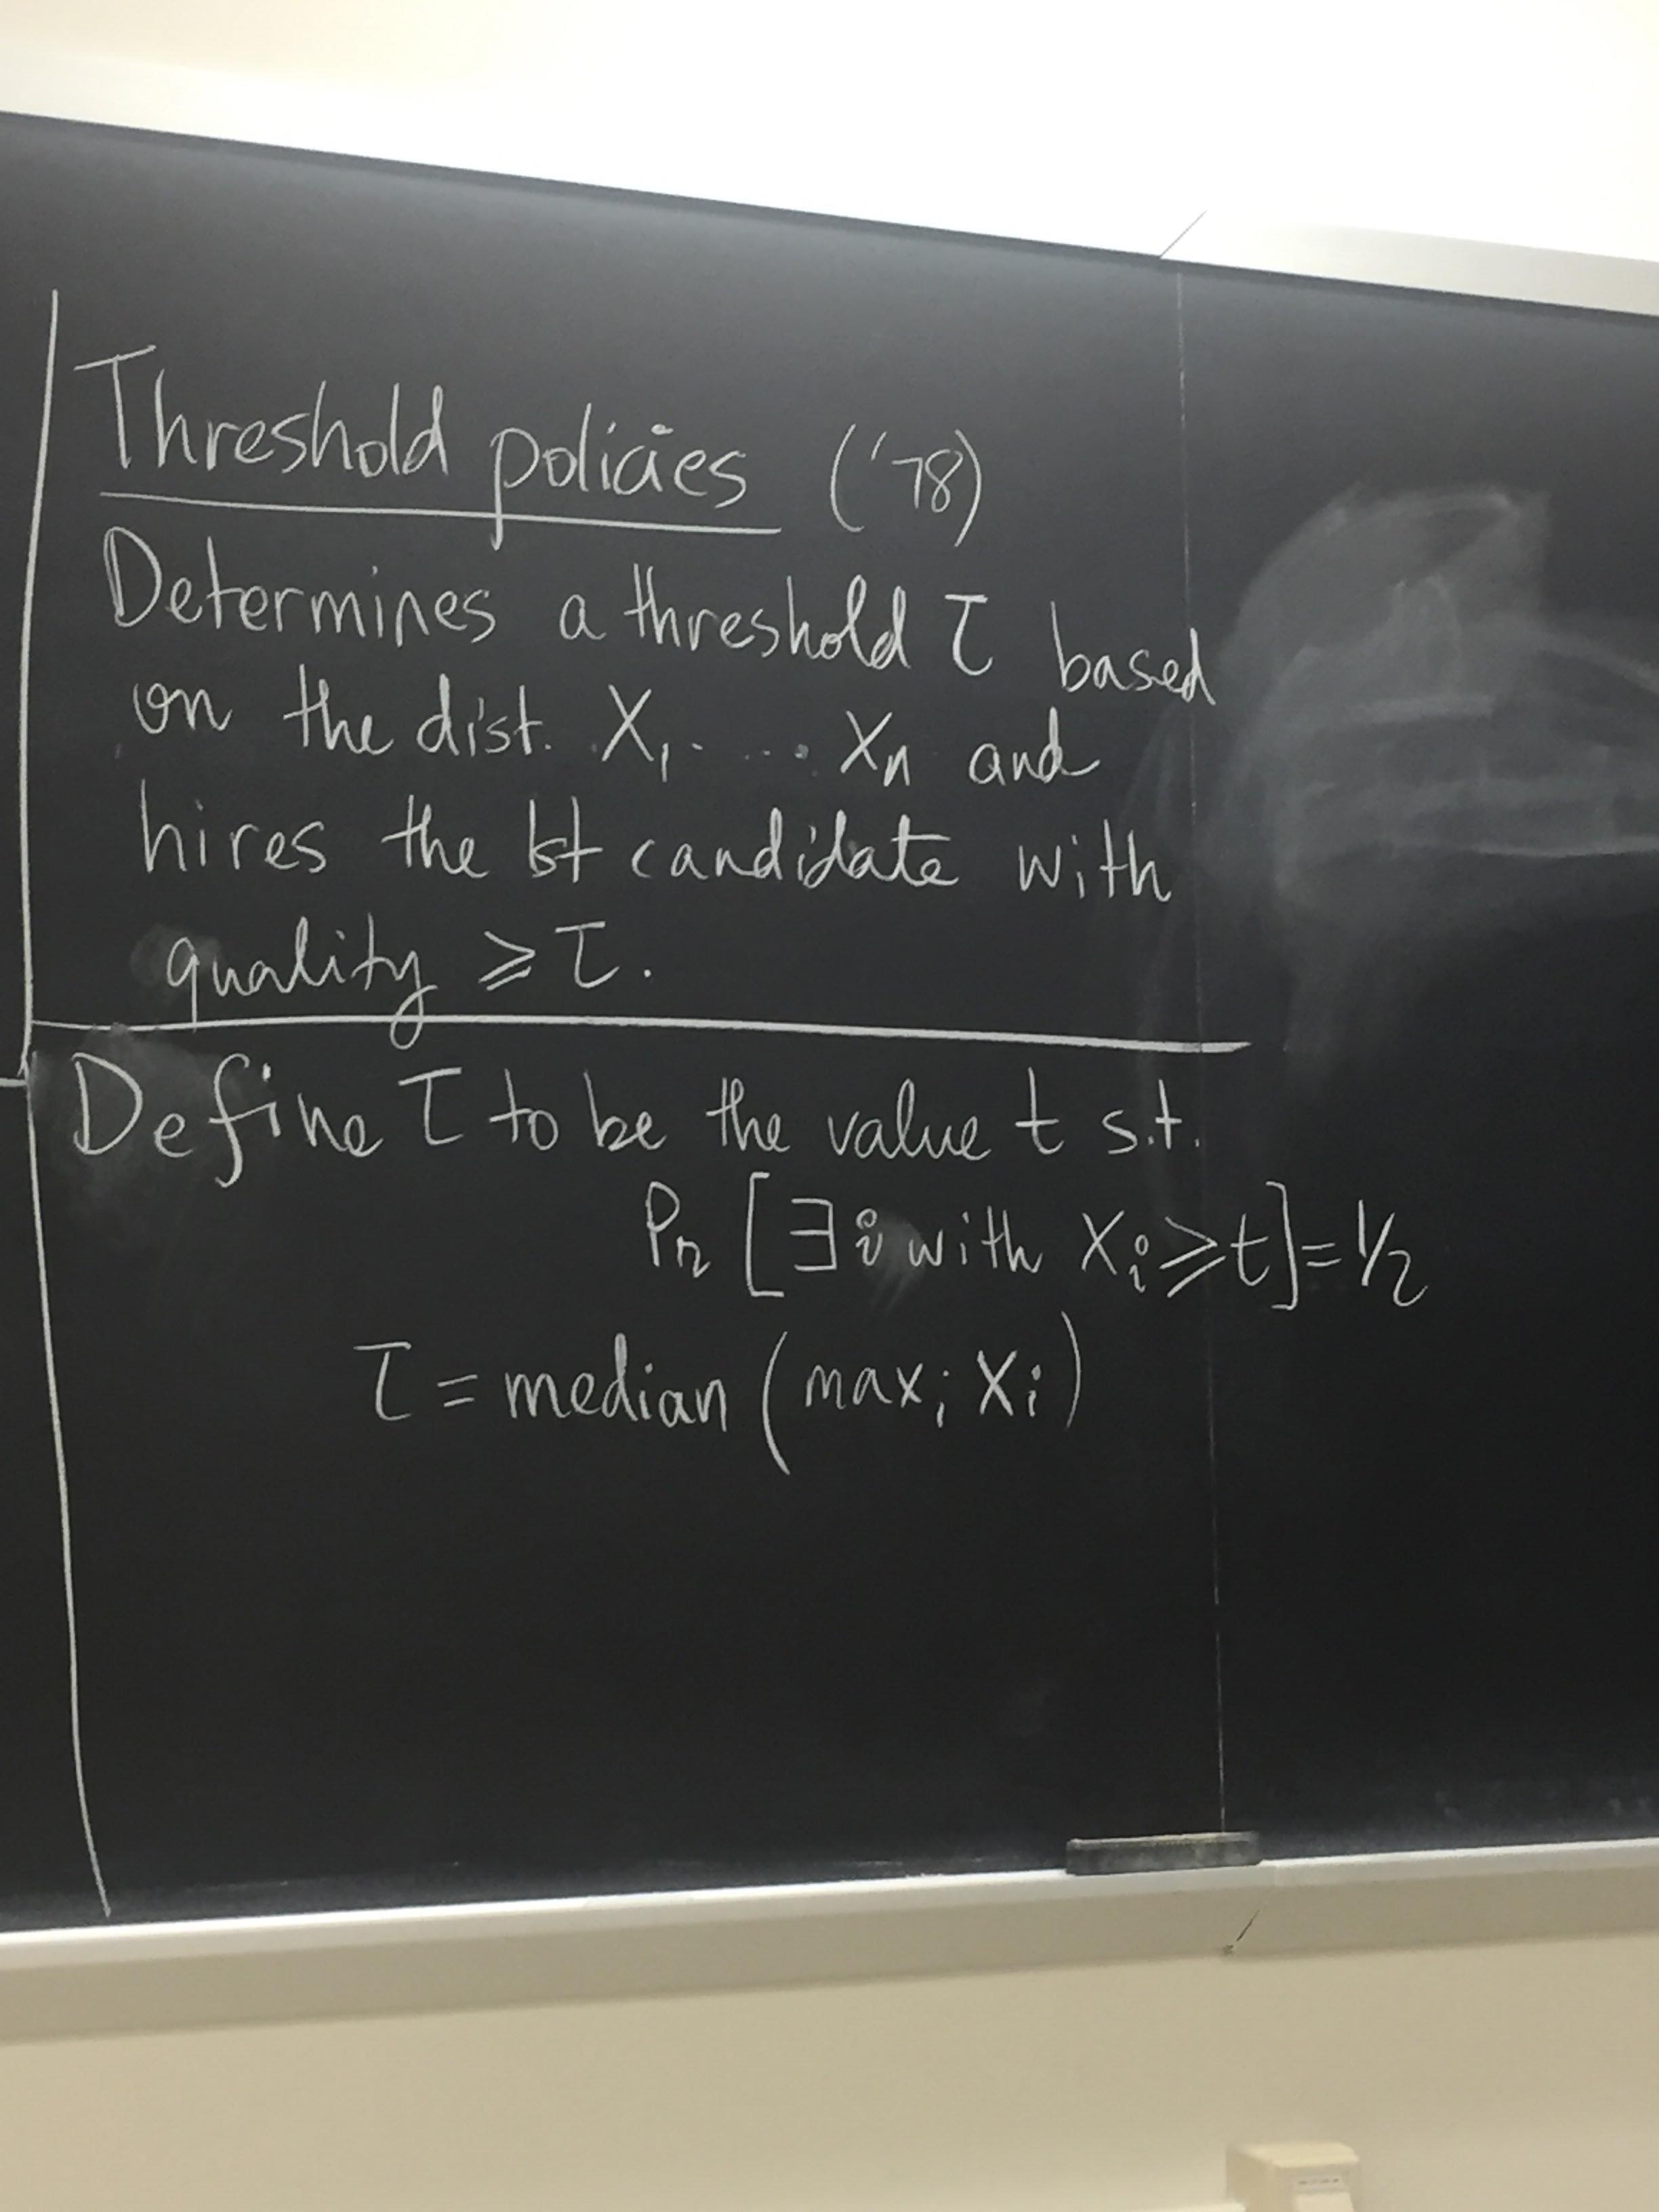 Threshold policies ('78)
Determines a threshold τ based
on the dist. X₁ .... Xn and
hires the 1st candidate with
quality ≥ τ.
Define τ to be the value t s.t.
Pr [∃ i with Xi ≥ t] = 1/2
τ = median (maxi Xi)